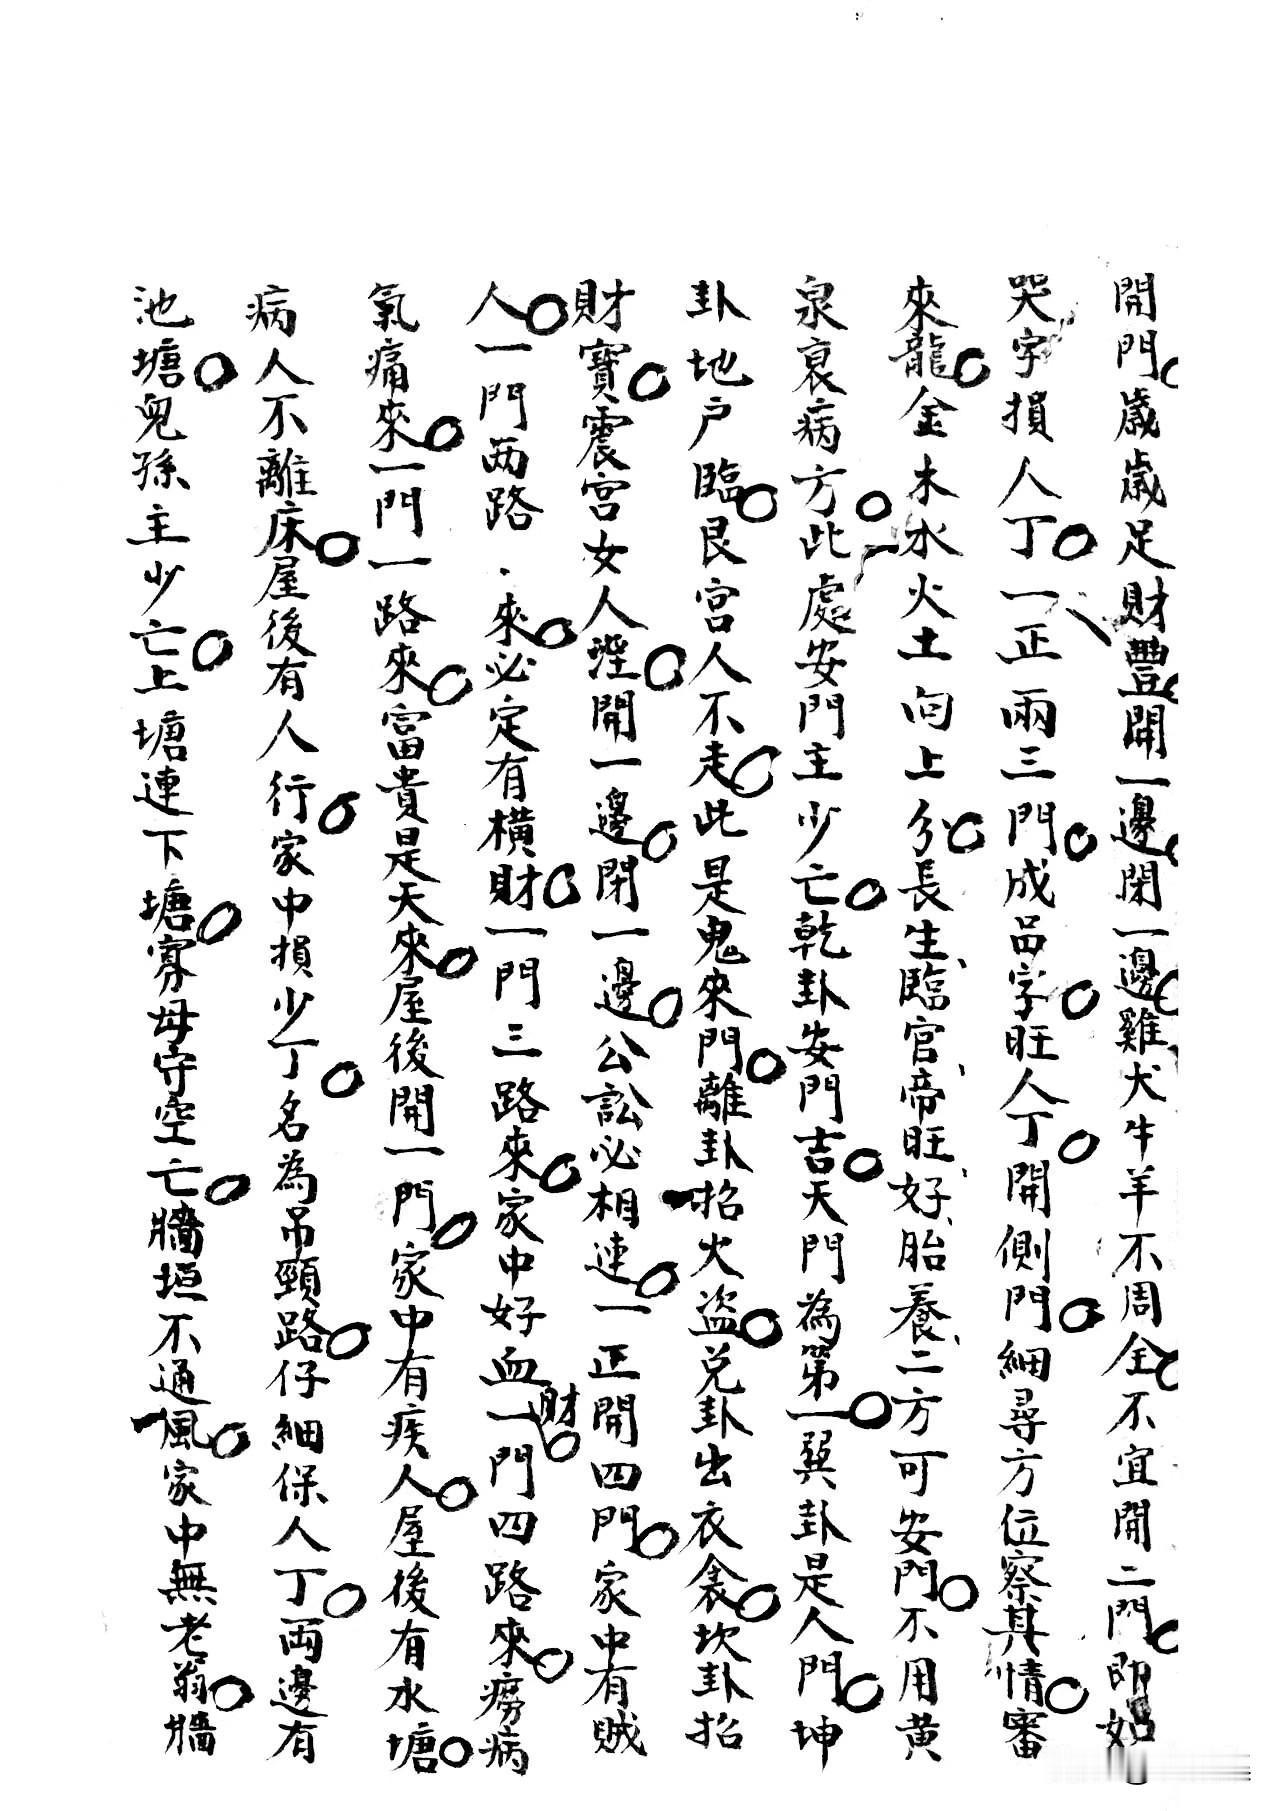 開門歲歲足財豐開一邊閉一邊雞犬牛羊不周全不宜開二門即如
哭字損人丁一正兩三門成品字旺人丁開側門細尋方位察其情審
來龍金木水火土向上分長生臨官帝旺好胎養二方可安門不用黄
泉衰病方此處安門主少亡乾卦安門吉天門為第一巽卦是人門坤
卦地户臨艮宫人不走此是鬼來門離卦招火盗兑卦出衣衾坎卦招
財寶震宫女人滛開一邊閉一邊公訟必相連一正開四門家中有賊
人一門两路來必定有横財一門三路來家中好血財一門四路來癆病
氣痛來一門一路來富貴是天來屋後開一門家中有疾人屋後有水塘
病人不離床屋後有人行家中損少丁名為吊頸路仔細保人丁両邊有
池塘兒孫主少亡上塘連下塘寡母守空亡牆垣不通風家中無老翁牆